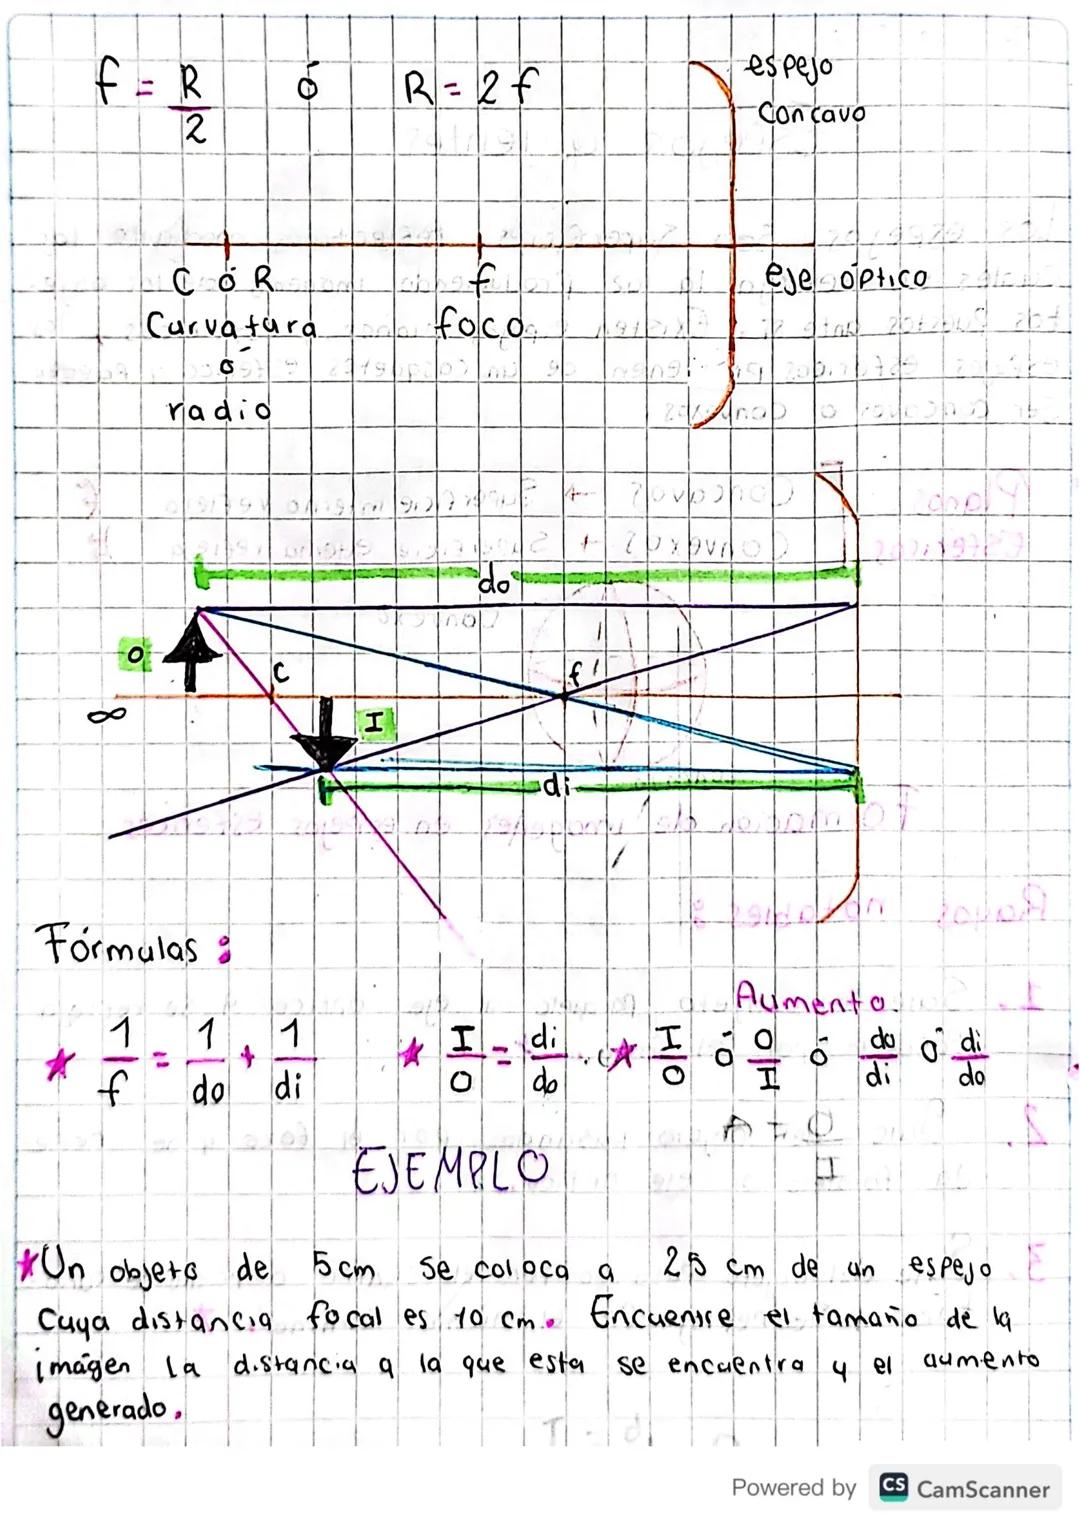 f = R/2 ó R = 2f
espejo
Concavo
C ó R
f
eje óptico
Curvatura
foco
ó
radio
do
O
C
f
∞
I
di
Fórmulas:
Aumento
★ 1/f = 1/do + 1/di ★ I/O = di/do ★ I/O ó O/I ó do/di ó di/do
EJEMPLO
★Un objeto de 5cm se coloca a 25 cm de un espejo
Cuya distancia focal es 10 cm. Encuentre el tamaño de la
imágen la distancia a la que esta se encuentra y el aumento
generado.
Powered by CS CamScanner